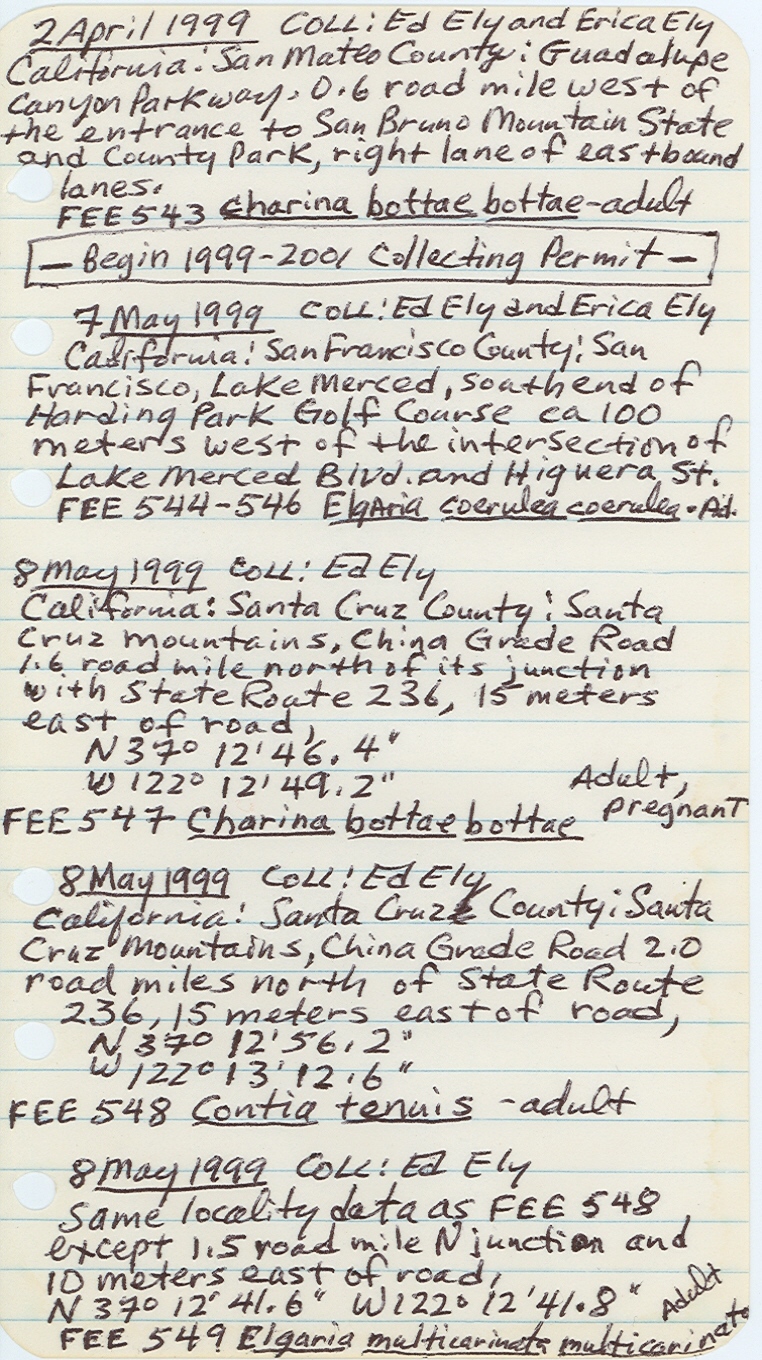 2 April 1999 COLL: Ed Ely and Erica Ely
California: San Mateo County: Guadalupe
Canyon Parkway, 0.6 road mile west of
the entrance to San Bruno Mountain State
and County Park, right lane of eastbound
lanes.
FEE 543 Charina bottae bottae-adult
— Begin 1999-2001 Collecting Permit —
7 May 1999 COLL: Ed Ely and Erica Ely
California: San Francisco County: San
Francisco, Lake Merced, south end of
Harding Park Golf Course ca 100
meters west of the intersection of
Lake Merced Blvd. and Higuera St.
FEE 544-546 Elgaria coerulea coerulea - Ad.
8 May 1999 COLL: Ed Ely
California: Santa Cruz County: Santa
Cruz Mountains, China Grade Road
1.6 road mile north of its junction
with State Route 236, 15 meters
east of road,
N 37° 12' 46.4"
W 122° 12' 49.2"
Adult,
pregnant
FEE 547 Charina bottae bottae
8 May 1999 COLL: Ed Ely
California: Santa Cruz County: Santa
Cruz Mountains, China Grade Road 2.0
road miles north of State Route
236, 15 meters east of road,
N 37° 12' 56.2"
W 122° 13' 12.6"
FEE 548 Contia tenuis - adult
8 May 1999 COLL: Ed Ely
Same locality data as FEE 548
except 1.5 road mile N junction and
10 meters east of road,
N 37° 12' 41.6" W 122° 12' 41.8" Adult
FEE 549 Elgaria multicarinata multicarinata